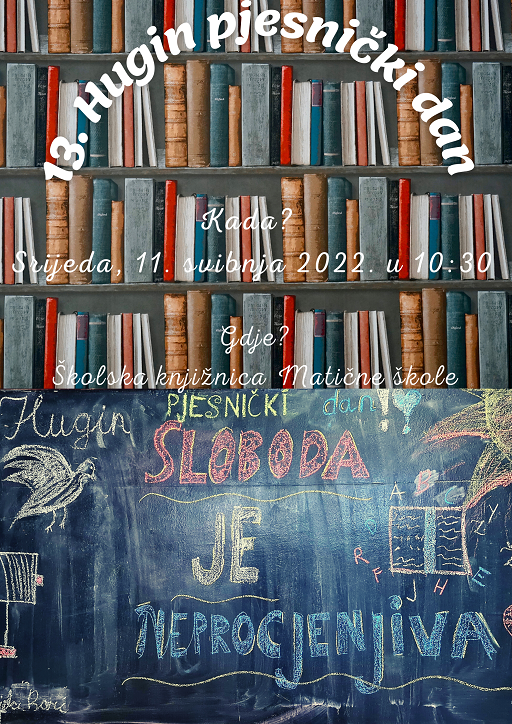 13. Hugin pjesnički dan
Kada?
Srijeda, 11. svibnja 2022. u 10:30
Gdje?
Školska knjižnica Matične škole
Hugin PJESNIČKI dan!
SLOBODA
JE
NEPROCJENJIVA
A
Z
Y
R
F
J
H
E